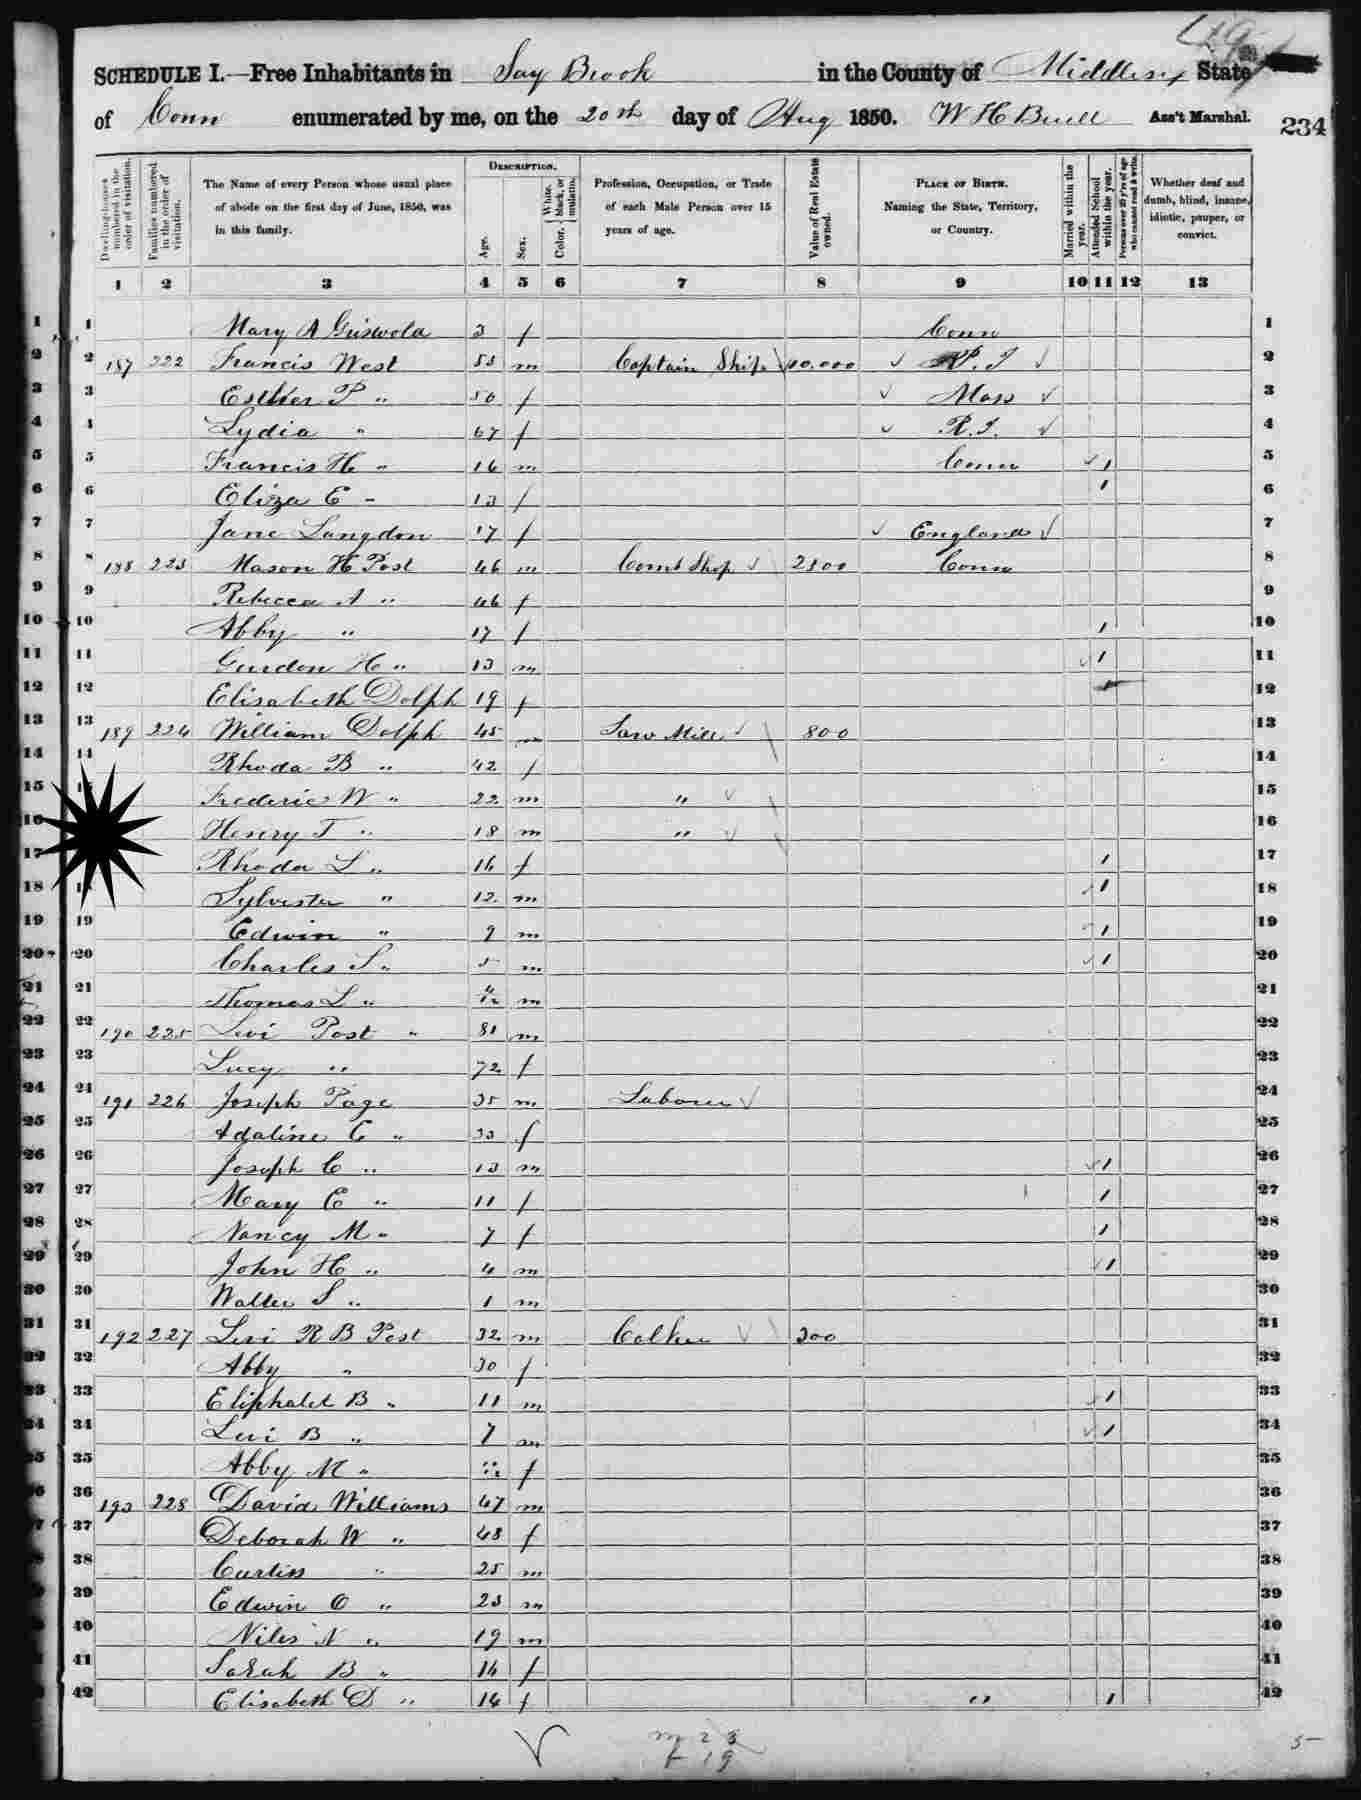 SCHEDULE I.—Free Inhabitants in Say Brook in the County of Middlesex State
of Conn enumerated by me, on the 20th day of Aug 1850. W H Buell Ass't Marshal.
234
Dwelling-houses numbered in the order of visitation.
Families numbered in the order of visitation.
The Name of every Person whose usual place of abode on the first day of June, 1850, was in this family.
DESCRIPTION.
Age.
Sex.
Color, White, black, or mulatto.
Profession, Occupation, or Trade of each Male Person over 15 years of age.
Value of Real Estate owned.
PLACE OF BIRTH. Naming the State, Territory, or Country.
Married within the year.
Attended School within the year.
Persons over 20 y'rs of age who cannot read & write.
Whether deaf and dumb, blind, insane, idiotic, pauper, or convict.
1 2 3 4 5 6 7 8 9 10 11 12 13
1 Mary A Griswold 3 f Conn 1
2 187 222 Francis West 53 m Captain Ship 10.000 R.I 2
3 Esther P " 50 f Mass 3
4 Lydia " 67 f R.I. 4
5 Francis H " 16 m Conn 1 5
6 Eliza E " 13 f 1 6
7 Jane Langdon 17 f England 7
8 188 223 Mason H Post 46 m Comb Shop 2300 Conn 8
9 Rebecca A " 46 f 9
10 Abby " 17 f 1 10
11 Gurdon H " 13 m 1 11
12 Elisabeth Dolph 19 f 12
13 189 224 William Dolph 45 m Saw Mill 800 13
14 Rhoda B " 42 f 14
15 Frederic W " 22 m " 15
16 Henry T " 18 m " 16
17 Rhoda L " 16 f 1 17
18 Sylvester " 12 m 1 18
19 Edwin " 9 m 1 19
20 Charles S " 5 m 1 20
21 Thomas L " m 21
22 190 225 Levi Post " 81 m 22
23 Lucy " 72 f 23
24 191 226 Joseph Page 35 m Laborer 24
25 Adaline C " 33 f 25
26 Joseph C " 13 m 1 26
27 Mary E " 11 f 1 27
28 Nancy M " 7 f 1 28
29 John H " 4 m 1 29
30 Walter S " 1 m 30
31 192 227 Levi R B Post 32 m Calker 300 31
32 Abby " 30 f 32
33 Eliphalet B " 11 m 1 33
34 Levi B " 7 m 1 34
35 Abby M " f 35
36 193 228 David Williams 47 m 36
37 Deborah W " 48 f 37
38 Curtiss " 25 m 38
39 Edwin O " 23 m 39
40 Niles N " 19 m 40
41 Sarah B " 14 f 41
42 Elisabeth D " 14 f " 1 42
m 23
f 19
5